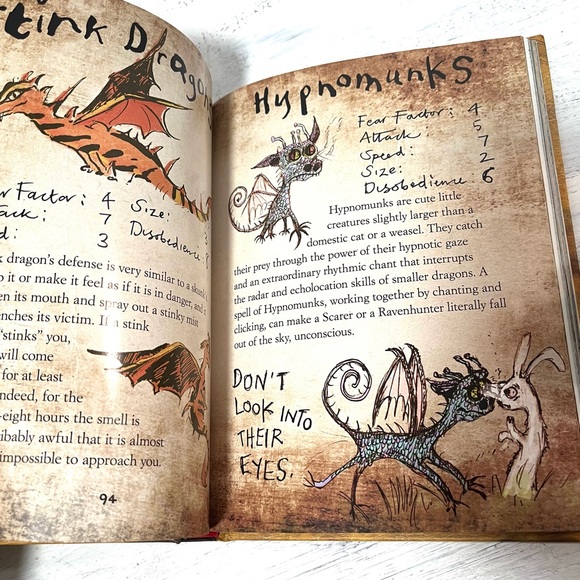 Stink Dragon
Fear Factor: 4 Size:
Attack: 7 Disobedience:
3
dragon's defense is very similar to a
it or make it feel as if it is in danger, and
its mouth and spray out a stinky mist
its victim. If a stink
"stinks" you,
will come
for at least
indeed, for the
-eight hours the smell is
awful that it is almost
impossible to approach you.
94
Hypnomunks
Fear Factor: 4
Attack: 5
Speed: 7
Size: 2
Disobedience: 6
Hypnomunks are cute little
creatures slightly larger than a
domestic cat or a weasel. They catch
their prey through the power of their hypnotic gaze
and an extraordinary rhythmic chant that interrupts
the radar and echolocation skills of smaller dragons. A
spell of Hypnomunks, working together by chanting and
clicking, can make a Scarer or a Ravenhunter literally fall
out of the sky, unconscious.
DON'T
LOOK INTO
THEIR
EYES.